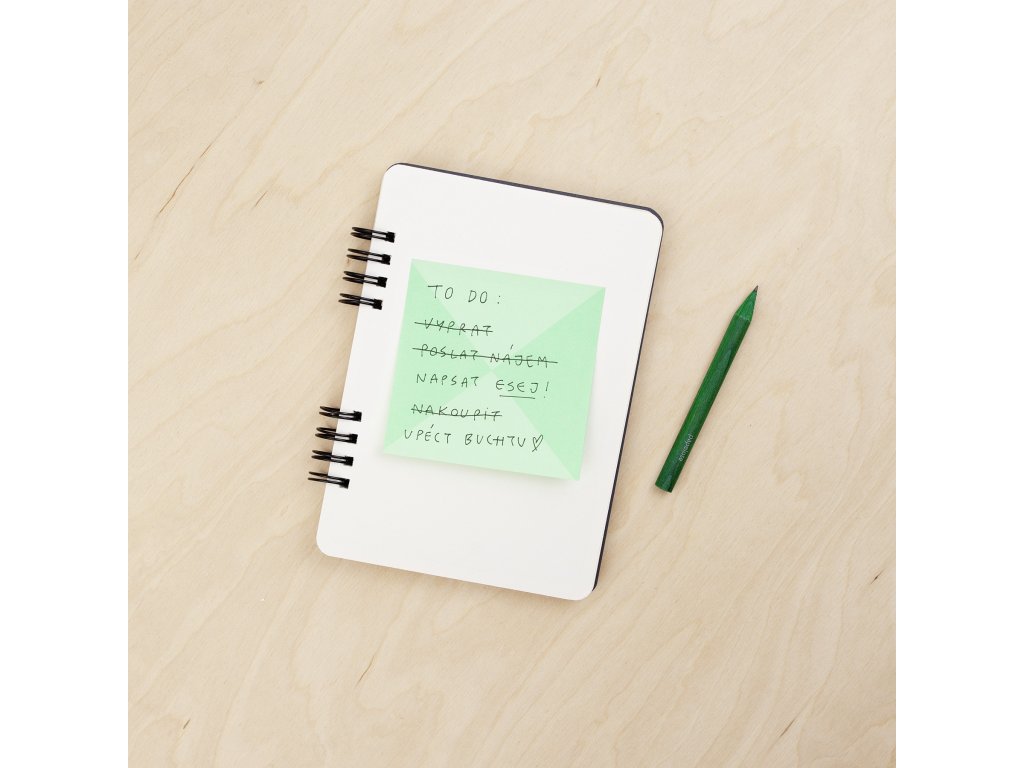 TO DO:
VYPRAT
POSLAT NÁJEM
NAPSAT ESEJ!
NAKOUPIT
UPÉCT BUCHTU♡
papelote